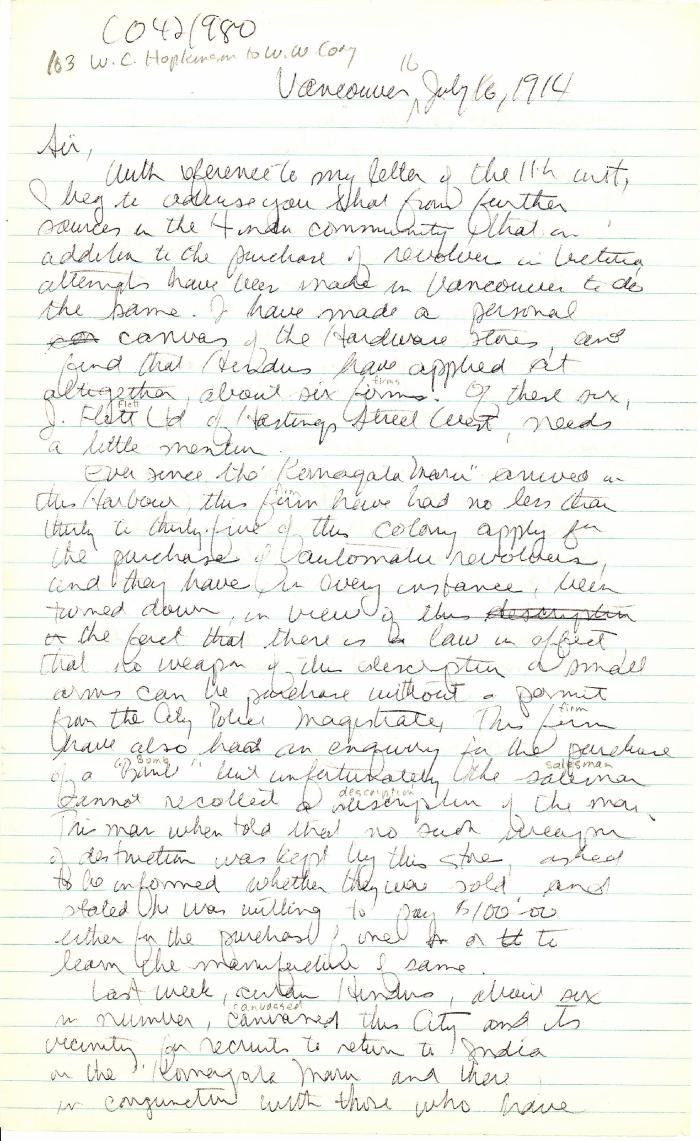 CO42/980
103 W.C. Hopkinson to W.W Cory
16
Vancouver, July 16, 1914
Sir,
With reference to my letter of the 11th inst,
I beg to advise you that from further
sources in the Hindu community that in
addition to the purchase of revolver in Victoria
attempts have been made in Vancouver to do
the same. I have made a personal
canvas of the Hardware Stores, and
find that Hindus have applied at
altogether, about six firms. Of these six,
firms
J. Flett Ltd of Hastings Street West, needs
Flett
a little mention.
Ever since the "Komagata Maru" arrived in
this Harbour, this firm have had no less than
firm
thirty to thirty-five of this colony apply for
the purchase of automatic revolvers,
and they have in every instance, been
turned down, in view of this description
the fact that there is a law in effect
that no weapon of this description or small
arms can be purchase without a permit
from the City Police Magistrate. This firm
firm
have also had an enquiry for the purchase
of a "Bomb" but unfortunately the salesman
Bomb
salesman
cannot recollect a description of the man.
description
This man when told that no such weapon
of destruction was kept by this store, asked
to be informed whether they were sold and
stated he was willing to pay $100.00
either for the purchase of one or to
learn the manufacture of same.
Last week, certain Hindus, about six
in number, canvassed this City and its
canvassed
vicinity for recruits to return to India
on the "Komagata Maru and there
in conjunction with those who have